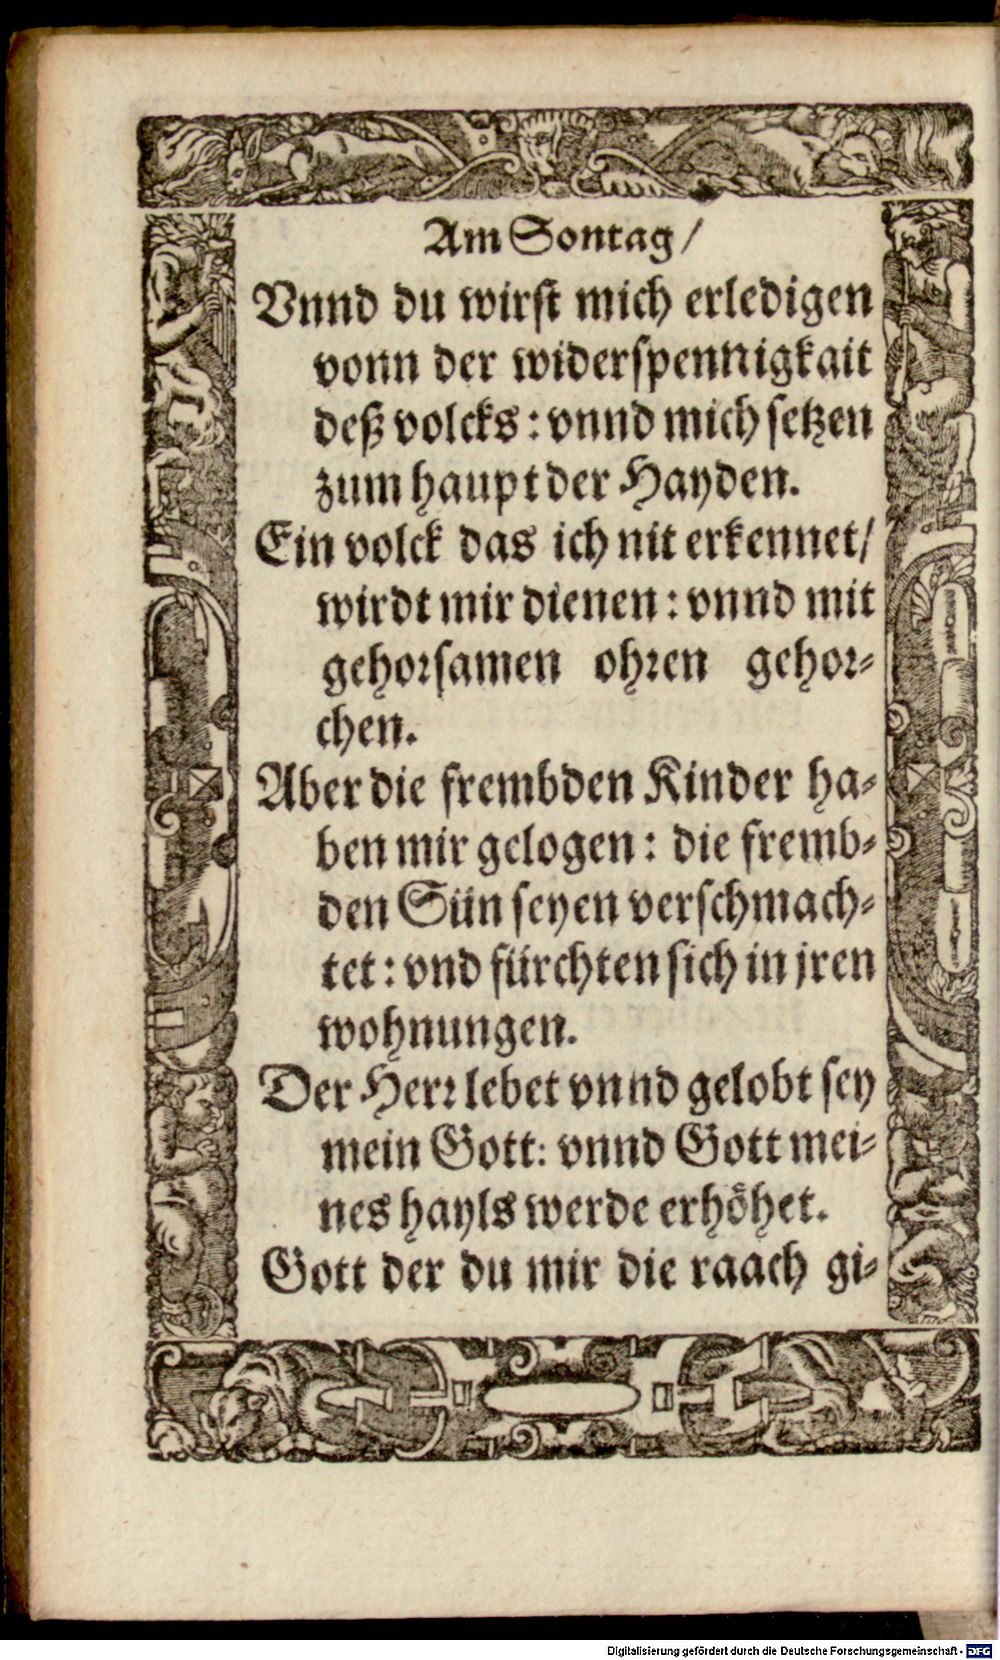 Am Sontag/
Vnnd du wirst mich erledigen
vonn der widerspennigkait
deß volcks: vnnd mich setzen
zum haupt der Hayden.
Ein volck das ich nit erkennet/
wirdt mir dienen: vnnd mit
gehorsamen ohren gehor-
chen.
Aber die frembden Kinder ha-
ben mir gelogen: die fremb-
den Sün seyen verschmach-
tet: vnd fürchten sich in jren
wohnungen.
Der Herr lebet vnnd gelobt sey
mein Gott: vnnd Gott mei-
nes hayls werde erhöhet.
Gott der du mir die raach gi-
Digitalisierung gefördert durch die Deutsche Forschungsgemeinschaft - DFG